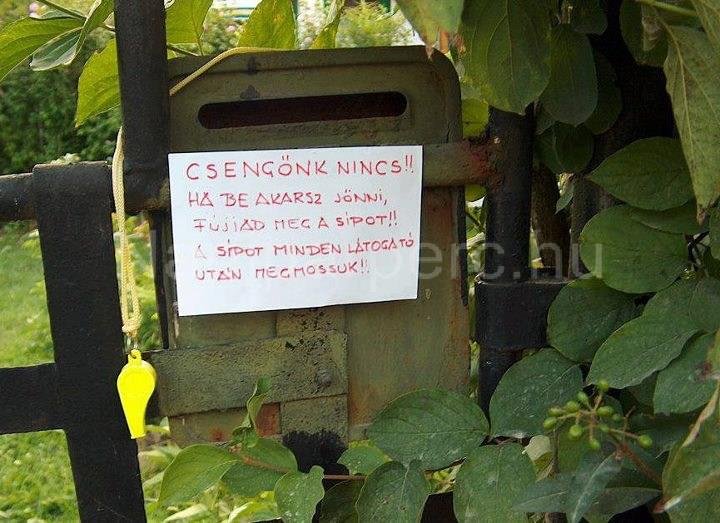 CSENGŐNK NINCS!!
HA BE AKARSZ JÖNNI,
FÚJJAD MEG A SÍPOT!!
A SÍPOT MINDEN LÁTOGATÓ
UTÁN MEGMOSSUK!!